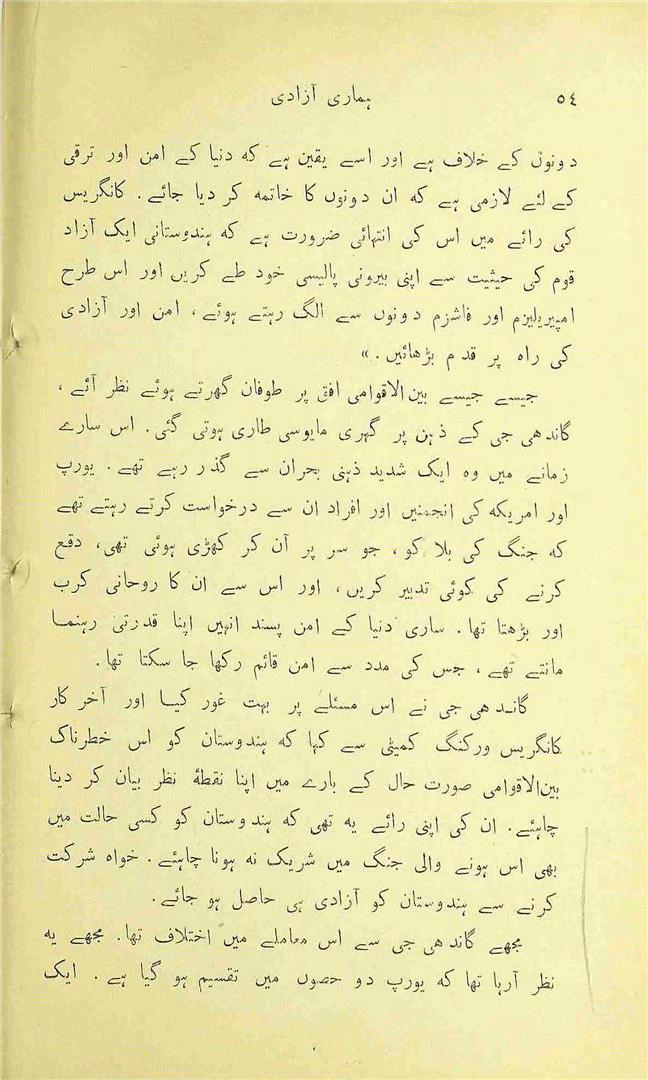 ٥٤
هماری آزادی
دونوں کے خلاف ہے اور اسے یقین ہے که دنیا کے امن اور ترقی
کے لئے لازمی ہے که ان دونوں کا خاتمه کر دیا جائے. کانگریس
کی رائے میں اس کی انتہائی ضرورت ہے که ہندوستانی ایک آزاد
قوم کی حیثیت سے اپنی بیرونی پالیسی خود طے کریں اور اس طرح
امپیریلیزم اور فاشزم دونوں سے الگ رہتے ہوئے، امن اور آزادی
کی راه پر قدم بڑھائیں.»
جیسے جیسے بین‌الاقوامی افق پر طوفان گھرتے ہوئے نظر آئے،
گاندھی جی کے ذہن پر گہری مایوسی طاری ہوتی گئی. اس سارے
زمانے میں وه ایک شدید ذہنی بحران سے گذر رہے تھے. یورپ
اور امریکه کی انجمنیں اور افراد ان سے درخواست کرتے رہتے تھے
که جنگ کی بلا کو، جو سر پر آن کر کھڑی ہوئی تھی، دفع
کرنے کی کوئی تدبیر کریں، اور اس سے ان کا روحانی کرب
اور بڑھتا تھا. ساری دنیا کے امن پسند انہیں اپنا قدرتی رہنما
مانتے تھے، جس کی مدد سے امن قائم رکھا جا سکتا تھا.
گاندھی جی نے اس مسئلے پر بہت غور کیا اور آخر کار
کانگریس ورکنگ کمیٹی سے کہا که ہندوستان کو اس خطرناک
بین‌الاقوامی صورت حال کے بارے میں اپنا نقطۀ نظر بیان کر دینا
چاہئے. ان کی اپنی رائے یه تھی که ہندوستان کو کسی حالت میں
بھی اس ہونے والی جنگ میں شریک نه ہونا چاہئے. خواه شرکت
کرنے سے ہندوستان کو آزادی ہی حاصل ہو جائے.
مجھے گاندھی جی سے اس معاملے میں اختلاف تھا. مجھے یه
نظر آرہا تھا که یورپ دو حصوں میں تقسیم ہو گیا ہے. ایک